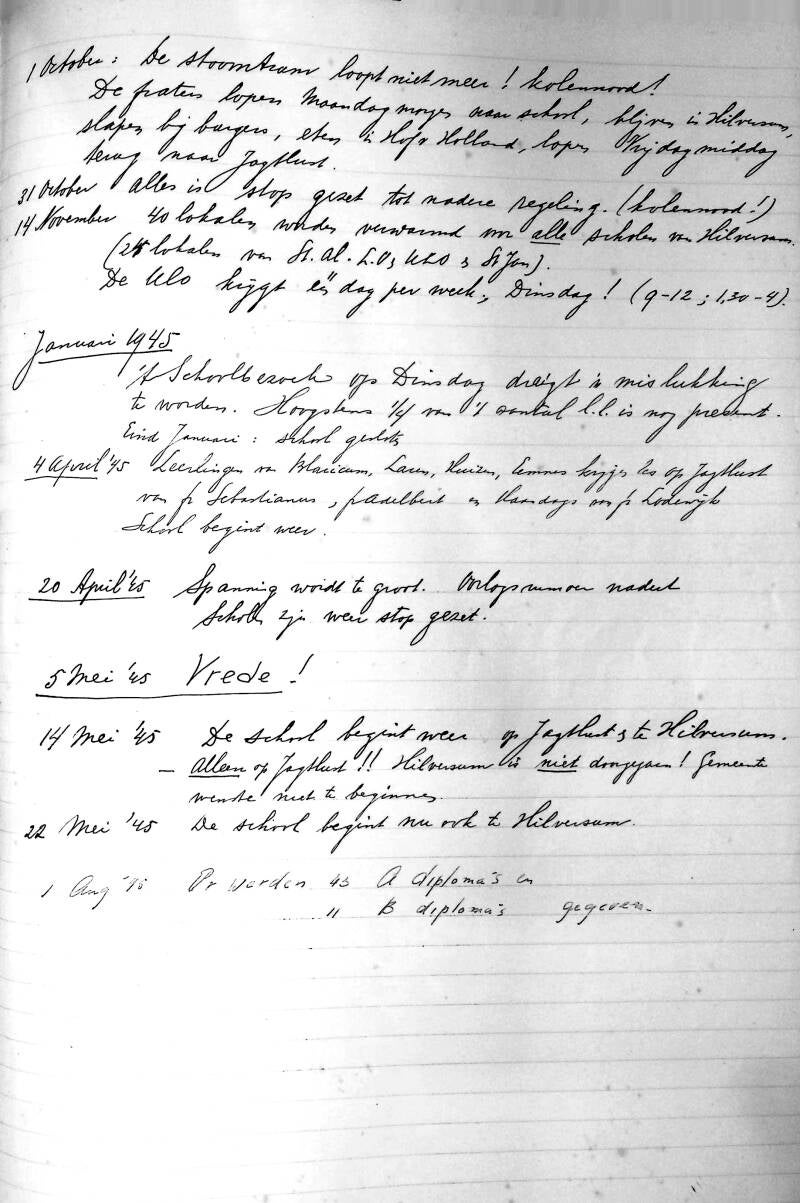 1 October: De stoomtram loopt niet meer! kolennood!
De fraters lopen Maandagmorgen naar school, blijven in Hilversum,
slapen bij burgers, eten in Hof v Holland, lopen Vrijdagmiddag
terug naar Jagtlust.
31 October Alles is stop gezet tot nadere regeling. (kolennood!)
14 November 40 lokalen worden verwarmd voor alle scholen van Hilversum.
(25 lokalen van St. Al. L.O, ULO & St Jan).
De Ulo krijgt één dag per week; Dinsdag! (9-12; 1,30-4).
Januari 1945
't Schoolbezoek op Dinsdag dreigt 'n mislukking
te worden. Hoogstens 1/4 van 't aantal l.l. is nog present.
Eind Januari: school gesloten
4 April '45 Leerlingen van Blaricum, Laren, Huizen, Eemnes krijgen les op Jagtlust
van fr Sebastianus, fr Adelbert en Maandags van fr Lodewijk
School begint weer.
20 April '45 Spanning wordt te groot. Oorlogsrumoer nadert
Scholen zijn weer stop gezet.
5 Mei '45 Vrede!
14 Mei '45 De school begint weer op Jagtlust & te Hilversum.
– Alleen op Jagtlust!! Hilversum is niet doorgegaan! Gemeente
wenste niet te beginnen.
22 Mei '45 De school begint nu ook te Hilversum.
1 Aug '45 Er werden 43 A diploma's en
11 B diploma's gegeven.